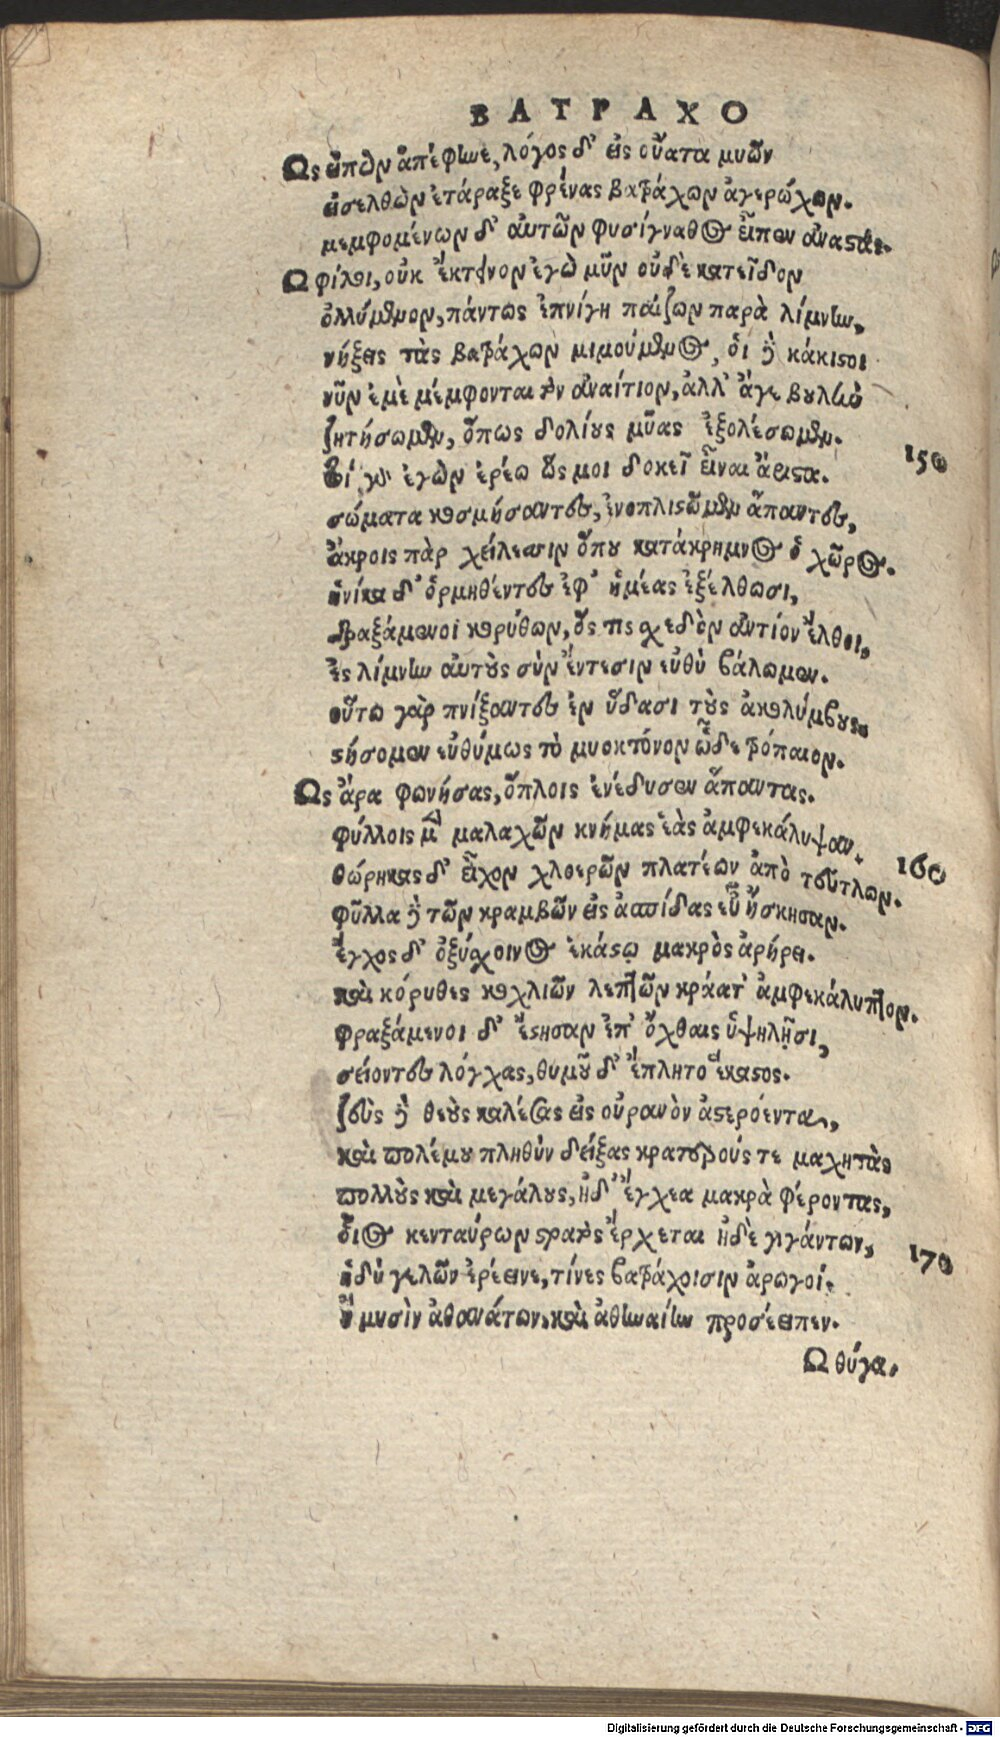 ΒΑΤΡΑΧΟ
Ως εἰπὼν ἀπέφηνε, λόγος δ' εἰς οὔατα μυῶν
εἰσελθὼν ἐτάραξε φρένας βατράχων ἀγερώχων.
μεμφομένων δ' αὐτῶν φυσίγναθος εἶπεν ἀναστάς.
Ω φίλοι, οὐκ ἔκτεινον ἐγὼ μῦν οὐδὲ κατεῖδον
ὀλλύμενον, πάντως ἐπνίγη παίζων παρὰ λίμνην,
νήξεις τὰς βατράχων μιμούμενος, οἱ δὲ κάκιστοι
νῦν ἐμὲ μέμφονται τὸν ἀναίτιον, ἀλλ' ἄγε βουλὴν
ζητήσωμεν, ὅπως δολίους μῦας ἐξολέσωμεν.
150
τοὶ γὰρ ἐγὼν ἐρέω ὥς μοι δοκεῖ εἶναι ἄριστα.
σώματα κοσμήσαντες, ἐνοπλισῶμεν ἅπαντες,
ἄκροις πὰρ χείλεσσιν ὅπου κατάκρημνος ὁ χῶρος.
ἡνίκα δ' ὁρμηθέντες ἐφ' ἡμέας ἐξέλθωσι,
δραξάμενοι κορύθων, ὅς τις σχεδὸν ἀντίον ἔλθοι,
ἐς λίμνην αὐτοὺς σὺν ἔντεσιν εὐθὺ βάλωμεν.
οὕτω γὰρ πνίξαντες ἐν ὕδασι τοὺς ἀκολύμβους,
στήσομεν εὐθύμως τὸ μυοκτόνον ὧδε τρόπαιον.
Ως ἄρα φωνήσας, ὅπλοις ἐνέδυσεν ἅπαντας.
φύλλοις μὲν μαλαχῶν κνήμας ἑὰς ἀμφεκάλυψαν,
160
θώρηκας δ' εἶχον χλοερῶν πλατέων ἀπὸ τεύτλων.
φῦλλα δὲ τῶν κραμβῶν εἰς ἀσπίδας εὖ ἤσκησαν.
ἔγχος δ' ὀξύσχοινος ἑκάστῳ μακρὸς ἀρήρει.
καὶ κόρυθες κοχλιῶν λεπτῶν κράατ' ἀμφεκάλυπτον.
φραξάμενοι δ' ἔστησαν ἐπ' ὄχθαις ὑψηλῇσι,
σείοντες λόγχας, θυμοῦ δ' ἔπλητο ἕκαστος.
ζεὺς δὲ θεοὺς καλέσας εἰς οὐρανὸν ἀστερόεντα,
καὶ πολέμου πληθὺν δείξας κρατερούς τε μαχητὰς
πολλοὺς καὶ μεγάλους, ἠδ' ἔγχεα μακρὰ φέροντας,
οἷος κενταύρων στρατὸς ἔρχεται ἠδὲ γιγάντων,
170
ἡδὺ γελῶν ἐρέεινε, τίνες βατράχοισιν ἀρωγοί.
ἢ μυσὶν ἀθανάτων, καὶ ἀθηναίην προσέειπεν.
Ω θύγα.
Digitalisierung gefördert durch die Deutsche Forschungsgemeinschaft - DFG